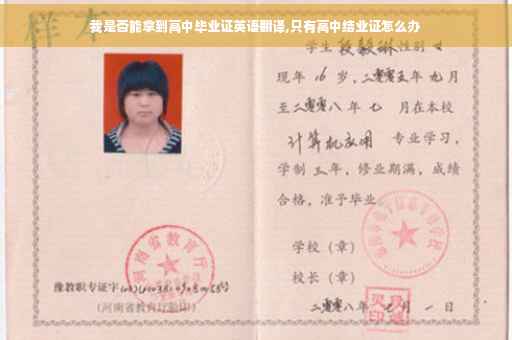 我是否能拿到高中毕业证英语翻译,只有高中结业证怎么办
样本
学生 段毅琳 性别 女
现年 16 岁,二零零五年 九月
至二零零八年 七 月在本校
计算机应用 专业学习,
学制 三 年,修业期满,成绩
合格,准予毕业
学校(章)
校长(章)
二零零八年 七月 一日
河南省教育厅
豫教职专证字
(河南省教育厅验印)